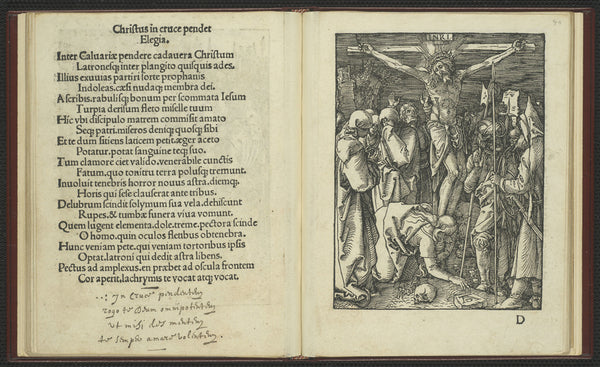 Christus in cruce pendet
Elegia.
Inter Caluariæ pendere cadauera Christum
Latronesq; inter plangito quisquis ades.
Illius exuuias partiri sorte prophanis
Indoleas, cæsi nudaq; membra dei.
A scribis, rabulisq; bonum per scommata Iesum
Turpia derisum fleto miselle tuum
Hic vbi discipulo matrem commisit amato
Seq; patri, miseros deniq; quosq; sibi
Et te dum sitiens laticem petit, æger aceto
Potatur, potat sanguine teq; suo.
Tum clamore ciet valido, venerabile cunctis
Fatum, quo tonitru terra polusq; tremunt.
Inuoluit tenebris horror nouus astra, diemq;
Horis qui sese clauserat ante tribus.
Delubrum scindit solymum sua vela, dehiscunt
Rupes, & tumbæ funera viua vomunt.
Quem lugent elementa, dole, treme, pectora scinde
O homo, quin oculos fletibus obtenebra.
Hunc veniam pete, qui veniam tortoribus ipsis
Optat, latroni qui dedit astra libens.
Pectus ad amplexus, en præbet ad oscula frontem
Cor aperit, lachrymis te vocat atq; vocat.
In cruce pendentem
rogo te Deum omnipotentem
ut mihi des mentem
te semper amare volentem.
INRI
D